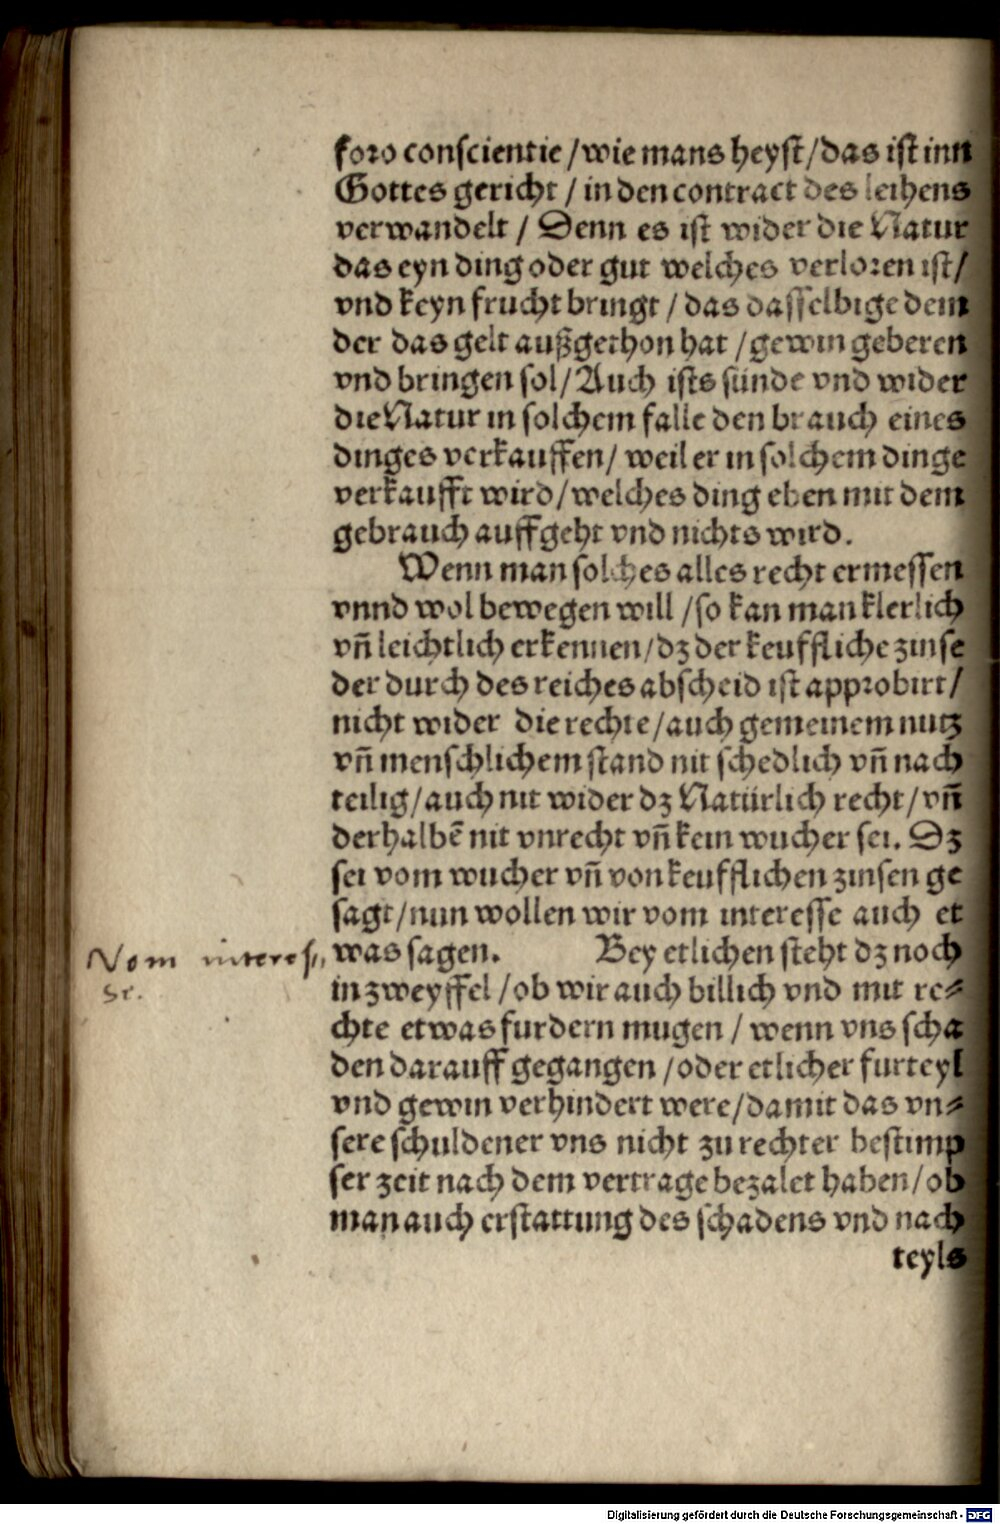 foro conscientie / wie mans heyst / das ist inn
Gottes gericht / in den contract des leihens
verwandelt / Denn es ist wider die Natur
das eyn ding oder gut welches verloren ist /
vnd keyn frucht bringt / das dasselbige dem
der das gelt außgethon hat / gewin geberen
vnd bringen sol / Auch ists sünde vnd wider
die Natur in solchem falle den brauch eines
dinges verkauffen / weil er in solchem dinge
verkaufft wird / welches ding eben mit dem
gebrauch auffgeht vnd nichts wird.
Wenn man solches alles recht ermessen
vnnd wol bewegen will / so kan man klerlich
vñ leichtlich erkennen / dz der keuffliche zinse
der durch des reiches abscheid ist approbirt /
nicht wider die rechte / auch gemeinem nutz
vñ menschlichem stand nit schedlich vñ nach
teilig / auch nit wider dz Natürlich recht / vñ
derhalbẽ nit vnrecht vñ kein wucher sei. Dz
sei vom wucher vñ von keufflichen zinsen ge
sagt / nun wollen wir vom interesse auch et
was sagen. Bey etlichen steht dz noch
Vom interes⸗
se.
in zweyffel / ob wir auch billich vnd mit re⸗
chte etwas furdern mugen / wenn vns scha
den darauff gegangen / oder etlicher furteyl
vnd gewin verhindert were / damit das vn⸗
sere schuldener vns nicht zu rechter bestimp
ser zeit nach dem vertrage bezalet haben / ob
man auch erstattung des schadens vnd nach
teyls
Digitalisierung gefördert durch die Deutsche Forschungsgemeinschaft - DFG